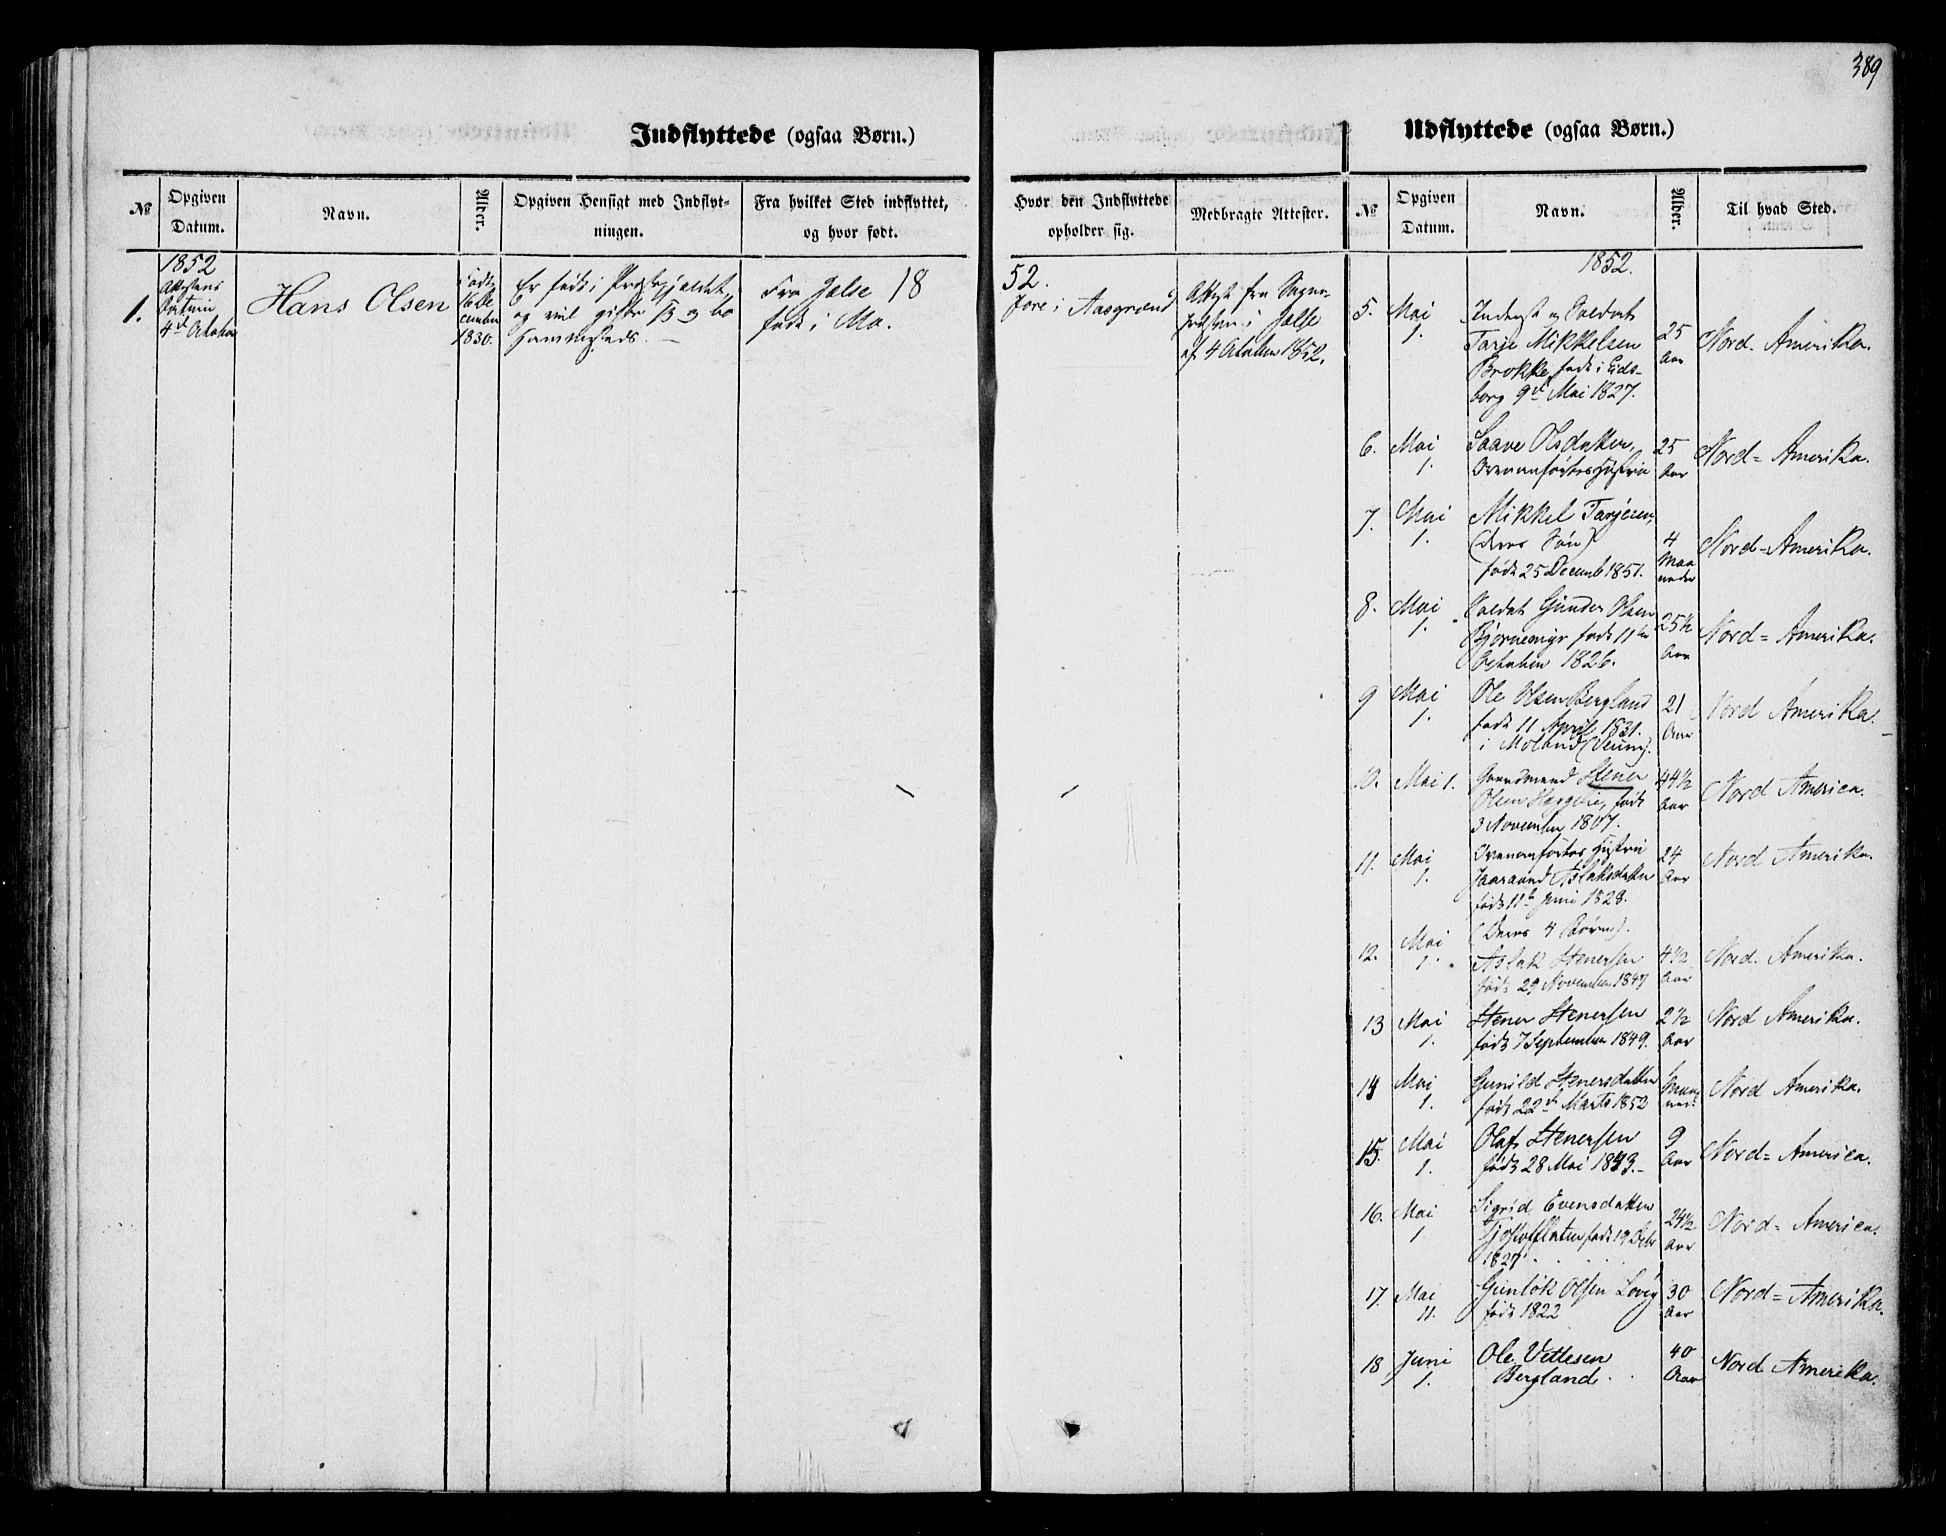 389
Indflyttede (ogsaa Børn.)
№
Opgiven
Datum.
Navn.
Alder.
Opgiven Hensigt med Indflyt-
ningen.
Fra hvilket Sted indflyttet,
og hvor født.
Hvor den Indflyttede
opholder sig.
Medbragte Attester.
1852
1.
Attestens
Datum
4de October
Hans Olsen
født
December
1830.
Er født i Præstegjeldet,
og vil gifte og bo
sammesteds. —
Fra
født i Mo.
18
52.
i Aasgrænd
Attest fra Sogne-
præsten i
af 4 October 1852.
Udflyttede (ogsaa Børn.)
№
Opgiven
Datum.
Navn.
Alder.
Til hvad Sted.
1852.
5. Mai 1. Inderst og Soldat
Tarje Mikkelsen
Brokke, født i Eids-
borg 9de Mai 1827.
25 Aar
Nord-Amerika.
6. Mai 1. Saave Olsdatter,
Ovenanførtes Hustru
25 Aar
Nord-Amerika.
7. Mai 1. Mikkel Tarjesen,
(deres Søn)
født 25 Decemb 1851.
4 Maaneder
Nord-Amerika.
8. Mai 1. Soldat Gunder Olsen
Bjørnemyr født 11te
October 1826.
25½ Aar
Nord-Amerika.
9 Mai 1. Ole Olsen Bergland
født 11 April 1831.
i Moland (Veum).
21 Aar
Nord Amerika.
10. Mai 1. Gaardmand Stener
Olsen født
3 November 1807.
44½ Aar
Nord America.
11. Mai 1. Ovenanførtes Hustru
Jaraand Aslaksdatter
født 11te Juni 1828.
24 Aar
Nord Amerika.
(Deres 4 Børn).
12. Mai 1. Aslak Stenersen
født 29 November 1847
4½ Aar
Nord. Amerika.
13 Mai 1. Stener Stenersen
født 7 September 1849.
2½ Aar
Nord Amerika.
14 Mai 1. Gunild Stenersdatter
født 22de Marts 1852
1 Maaned
Nord Amerika.
15. Mai 1. Olaf Stenersen
født 28 Mai 1843.—
9 Aar
Nord-America.
16. Mai 1 Sigrid Evensdatter
født 19 Debr
1827
24½ Aar
Nord-America.
17. Mai 11. Gunlek Olsen
født 1822
30 Aar
Nord-Amerika.
18 Juni 1. Ole Vetlesen
Bergland.
40 Aar
Nord Amerika.